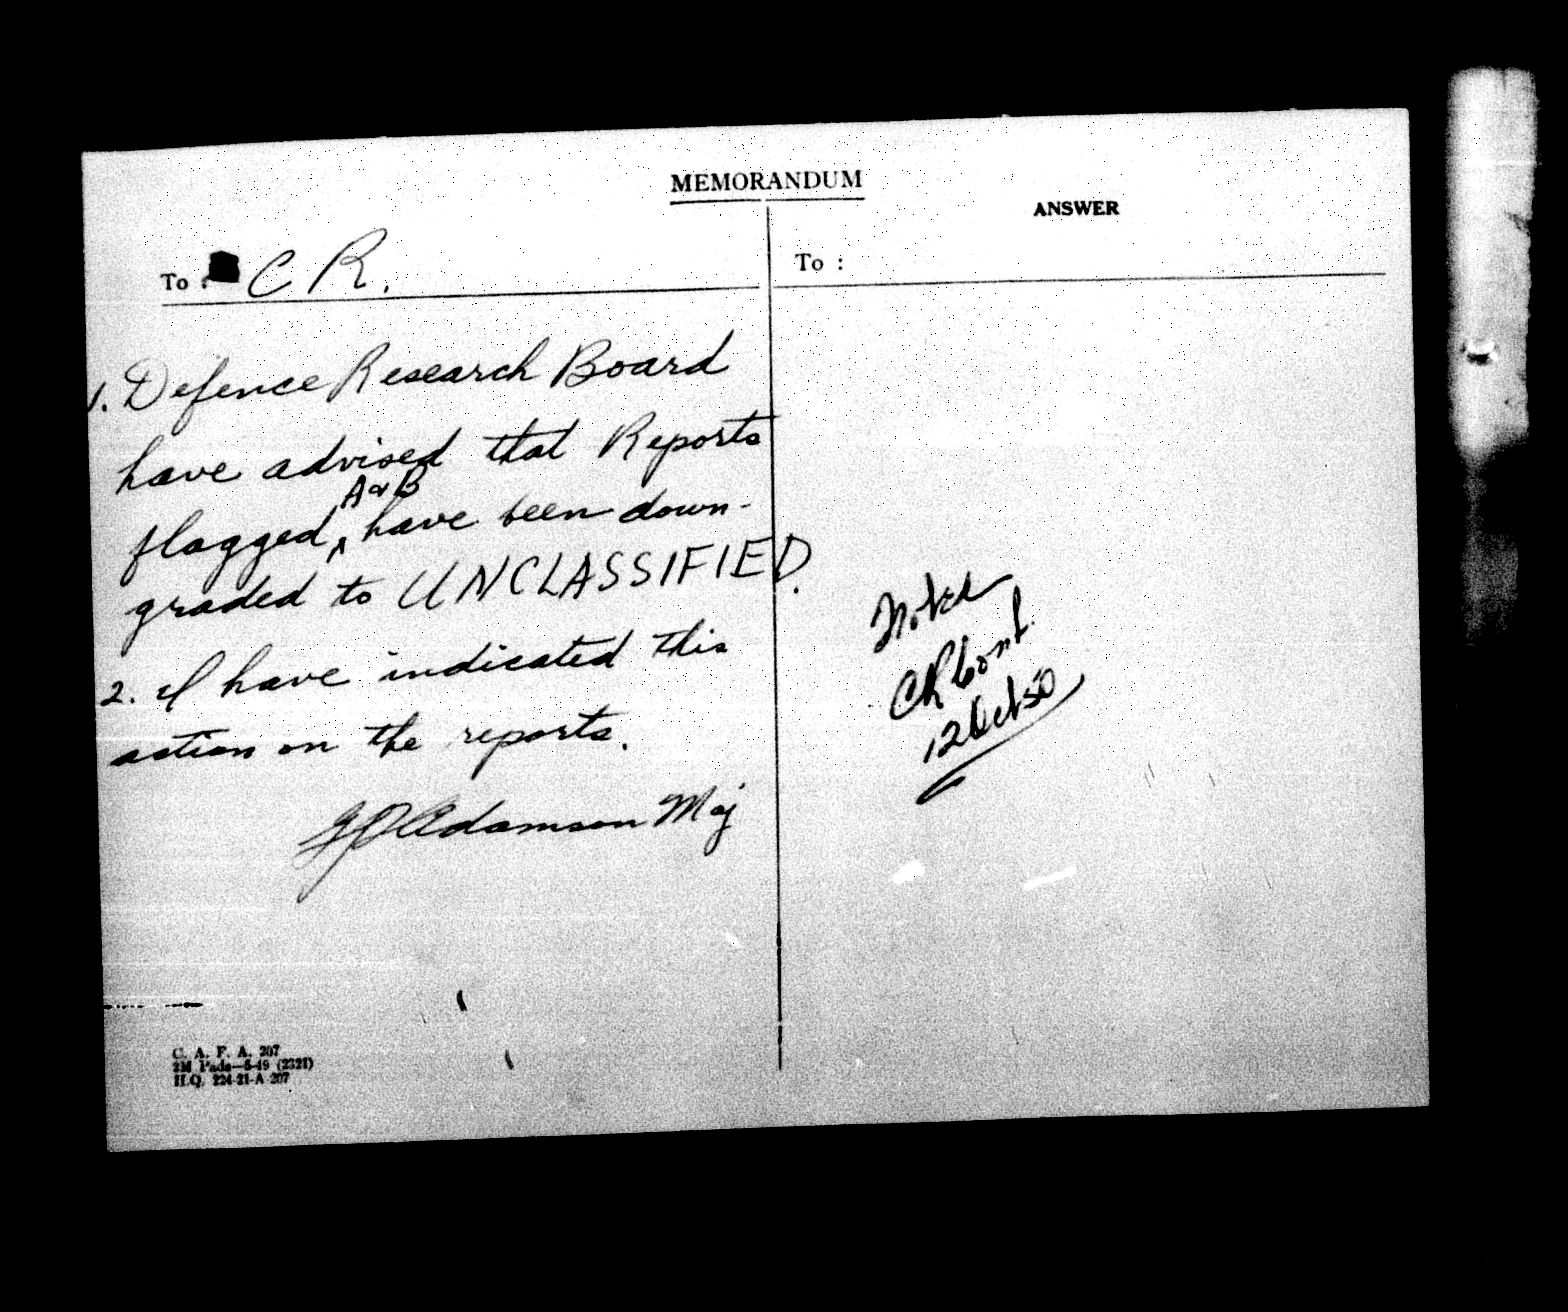 MEMORANDUM
To : C R.
1. Defence Research Board
have advised that Reports
A & B
flagged, ^ have been down-
graded to UNCLASSIFIED.
2. I have indicated this
action on the reports.
Adamson Maj
C. A. F. A. 207
2M Pads—5-49 (2321)
H.Q. 224-21-A 207
ANSWER
To :
Noted
CR
12 Oct 50